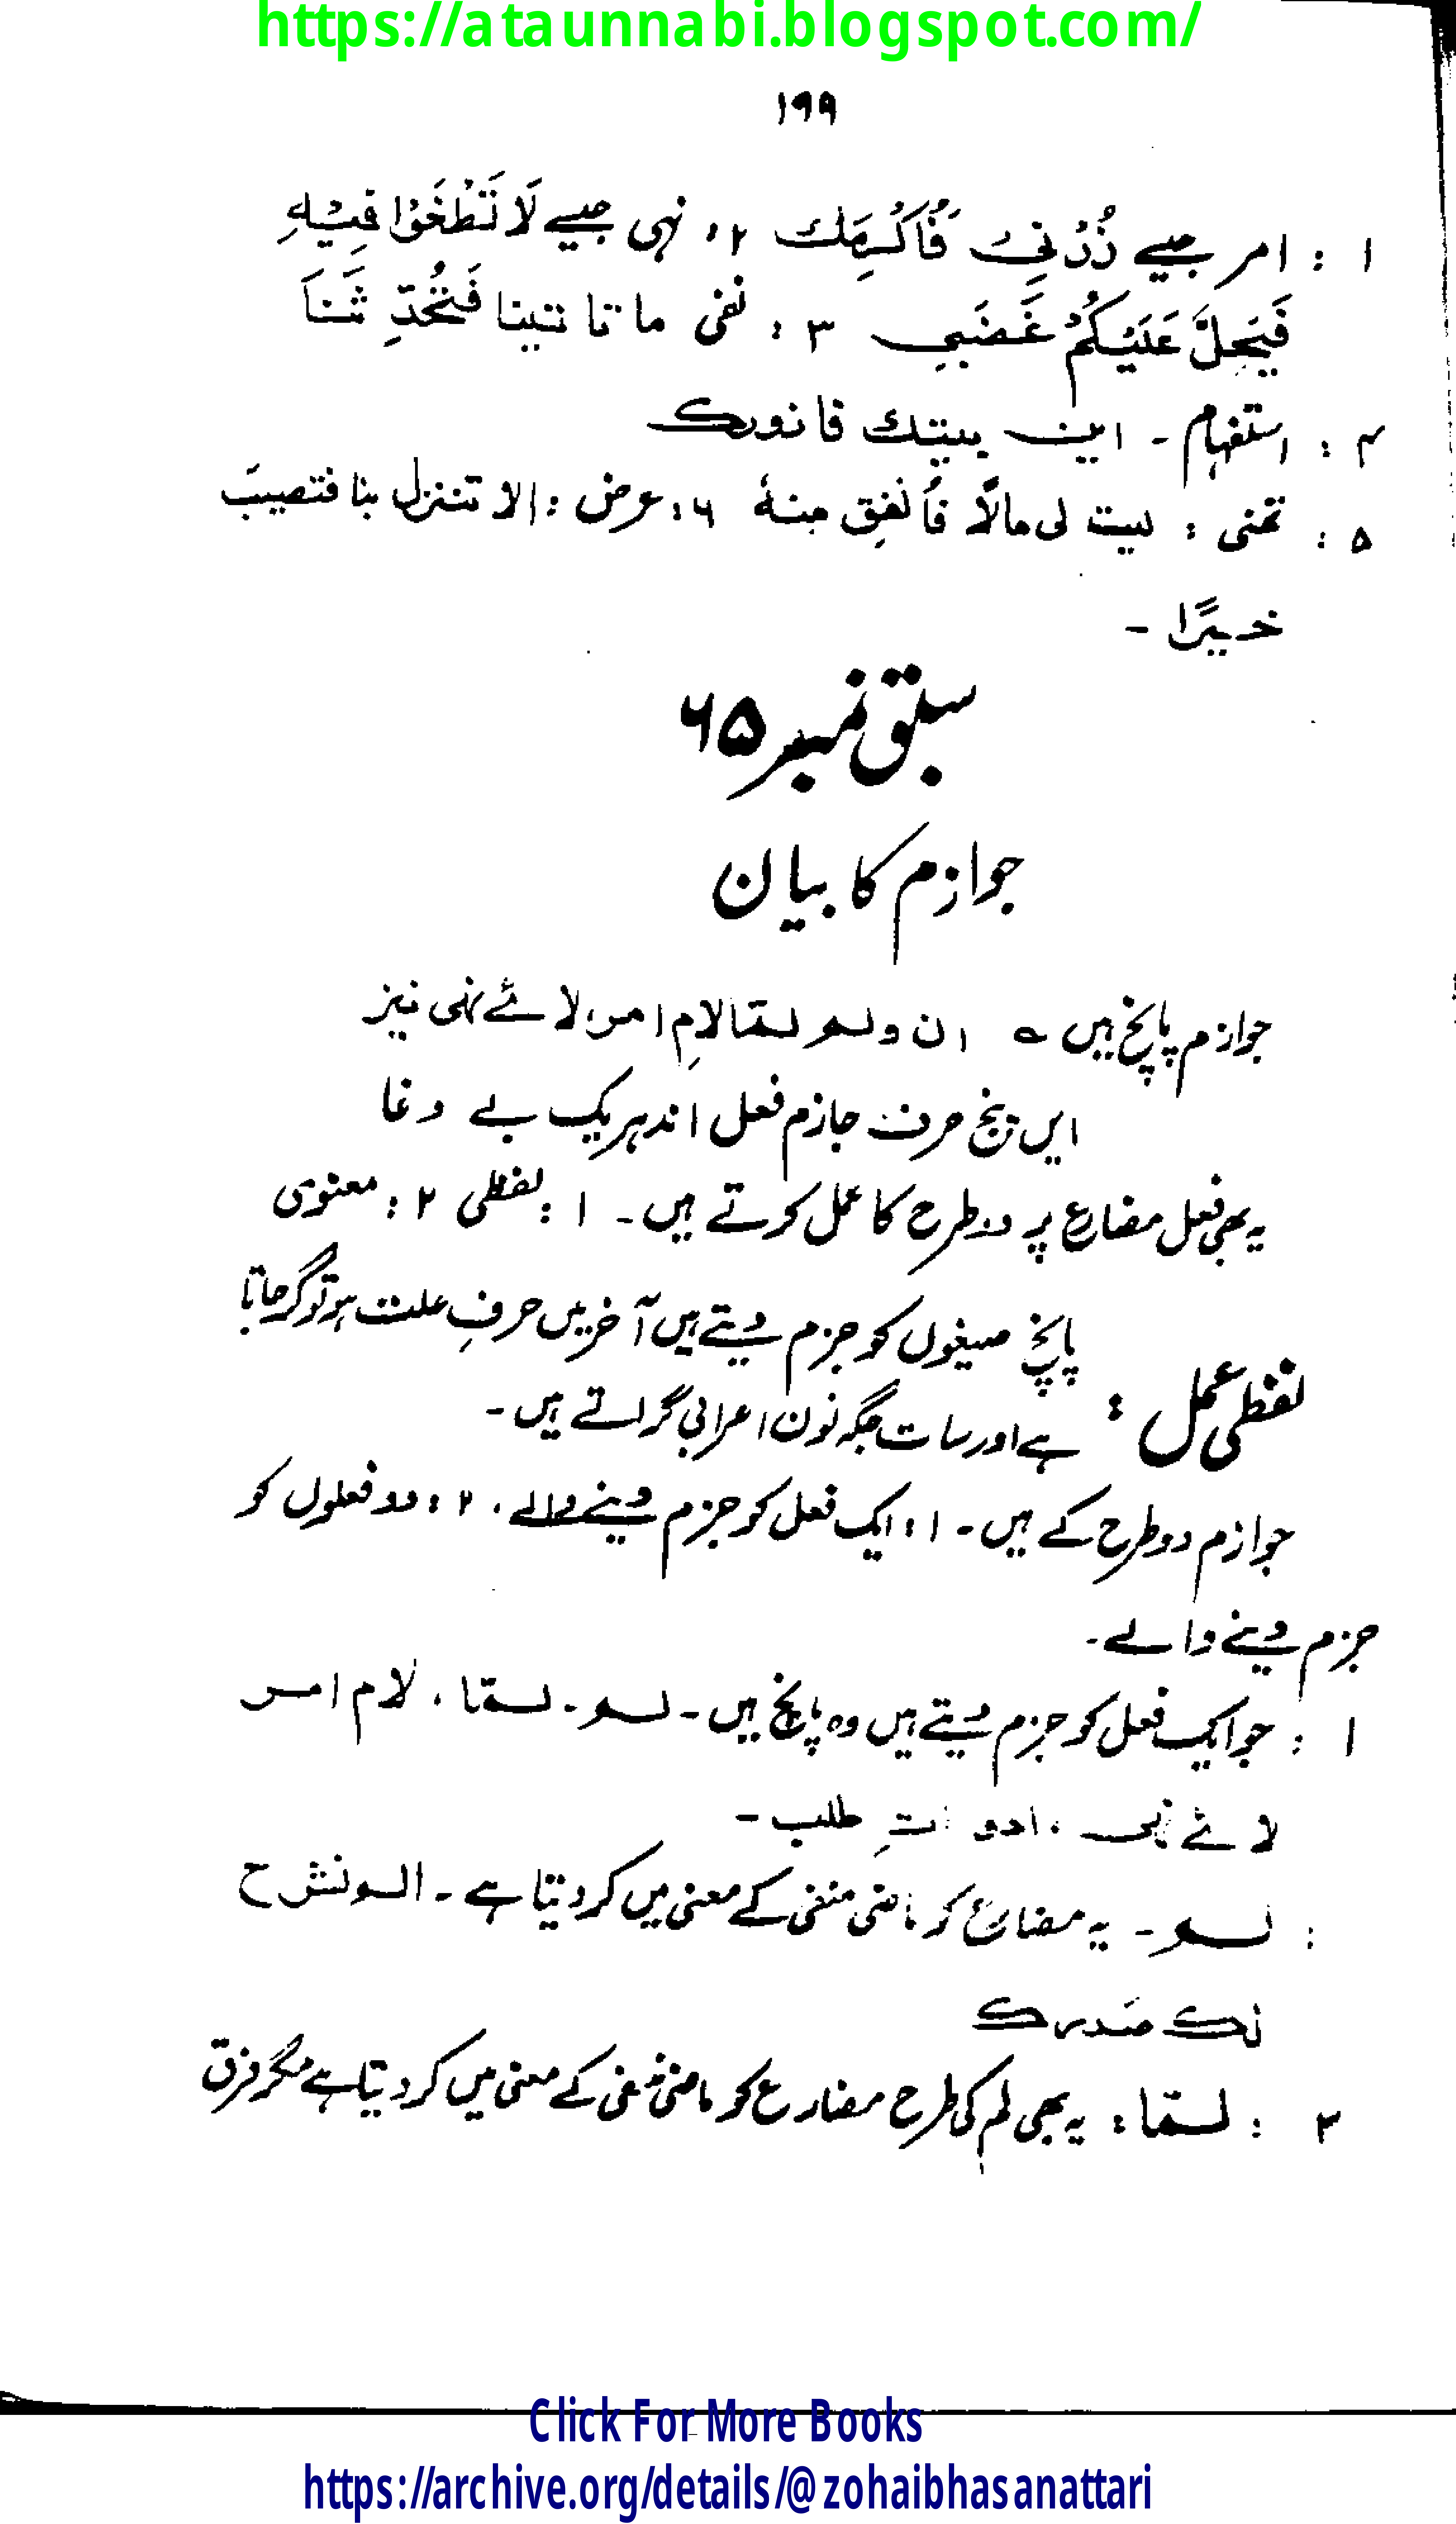 https://ataunnabi.blogspot.com/
۱۹۹
۱ : امر جیسے زُرْنِیْ فَاُکْرِمَكَ ۲ : نہی جیسے لَا تَطْغَوْا فِیْهِ
فَیَحِلَّ عَلَیْکُمْ غَضَبِی ۳ : نفی ما تا تینا فَتُحَدِّ ثَنَا
۴ : استفہام ۔ این بیتك فا نورك
۵ : تمنی : لیت لی مالًا فأنفِق منهٗ ۶ : عرض : الا تنزل بنا فتصیبَ
خیرًا ۔
سبق نمبر ۶۵
جوازم کا بیان
جوازم پانچ ہیں ؎ ان ولم لمّا لامِ امر، لائے نہی نیز
ایں پنج حرف جازم فعل اند ہریک بے دغا
یہ بھی فعل مضارع پر دو طرح کا عمل کرتے ہیں ۔ ۱ : لفظی ۲ : معنوی
لفظی عمل : پانچ صیغوں کو جزم دیتے ہیں آخر میں حرفِ علت ہو تو گر جاتا
ہے اور سات جگہ نون اعرابی گراتے ہیں ۔
جوازم دو طرح کے ہیں ۔ ۱ : ایک فعل کو جزم دینے والے ، ۲ : دو فعلوں کو
جزم دینے والے ۔
۱ : جو ایک فعل کو جزم دیتے ہیں وہ پانچ ہیں ۔ لم ۔ لمّا ، لام امر
لائے نہی ، ادواتِ طلب ۔
: لم ۔ یہ مضارع کو ماضی منفی کے معنی میں کر دیتا ہے ۔ الم نشرح
لك صدرك
۲ : لمّا : یہ بھی لم کی طرح مضارع کو ماضی منفی کے معنی میں کر دیتا ہے مگر فرق
Click For More Books
https://archive.org/details/@zohaibhasanattari